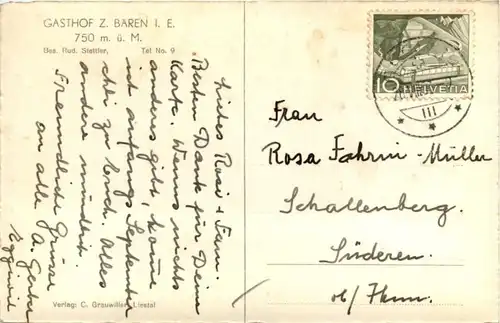 GASTHOF Z. BÄREN I. E.
750 m. ü. M.
Bes. Rud. Stettler, Tel No. 9
Liebes Rosi + Fam.
Besten Dank für Dein
Karte. Wenns nichts
anders gibt, komme
ich anfangs September
zu Euch. Alles
andere mündlich.
Freundliche Grüsse
an alle A. Gerber
Eggiwil
Verlag: C. Grauwiller, Liestal
10 HELVETIA
III
Frau
Rosa Fahrni-Müller
Schallenberg.
Süderen.
ob/Thun.